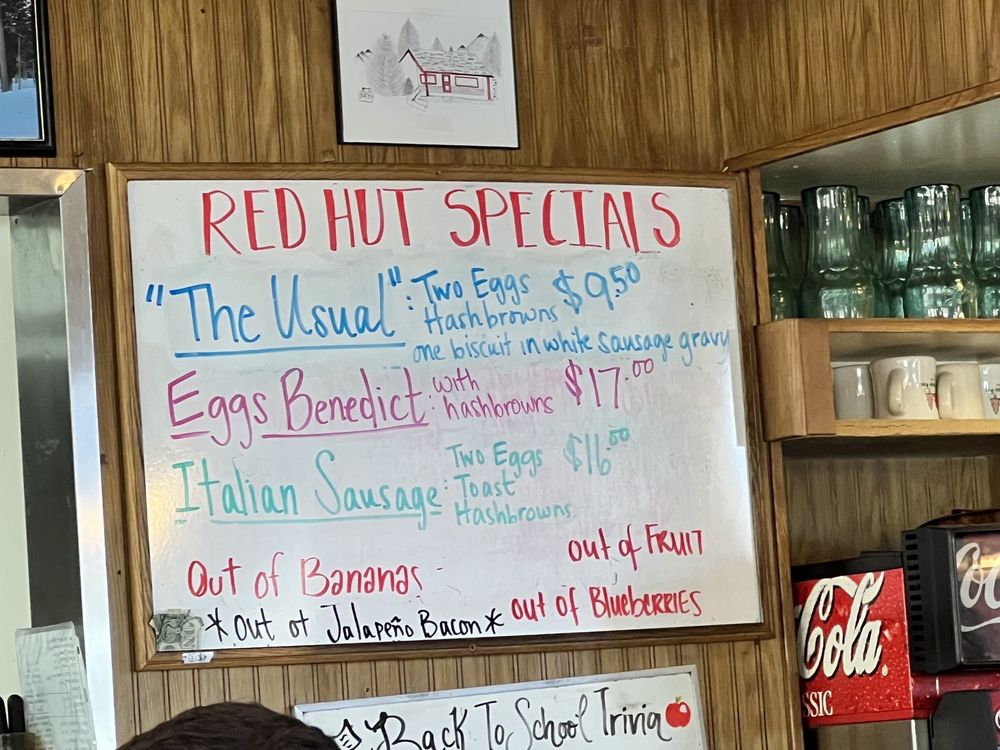 RED HUT SPECIALS
"The Usual": Two Eggs $9.50
Hashbrowns
one biscuit in white sausage gravy
Eggs Benedict: with hashbrowns $17.00
Italian Sausage: Two Eggs $16.00
Toast
Hashbrowns
out of FRUIT
Out of Bananas
out of BlueBERRIES
*out of Jalapeño Bacon*
Back To School Trivia
Cola
SSIC